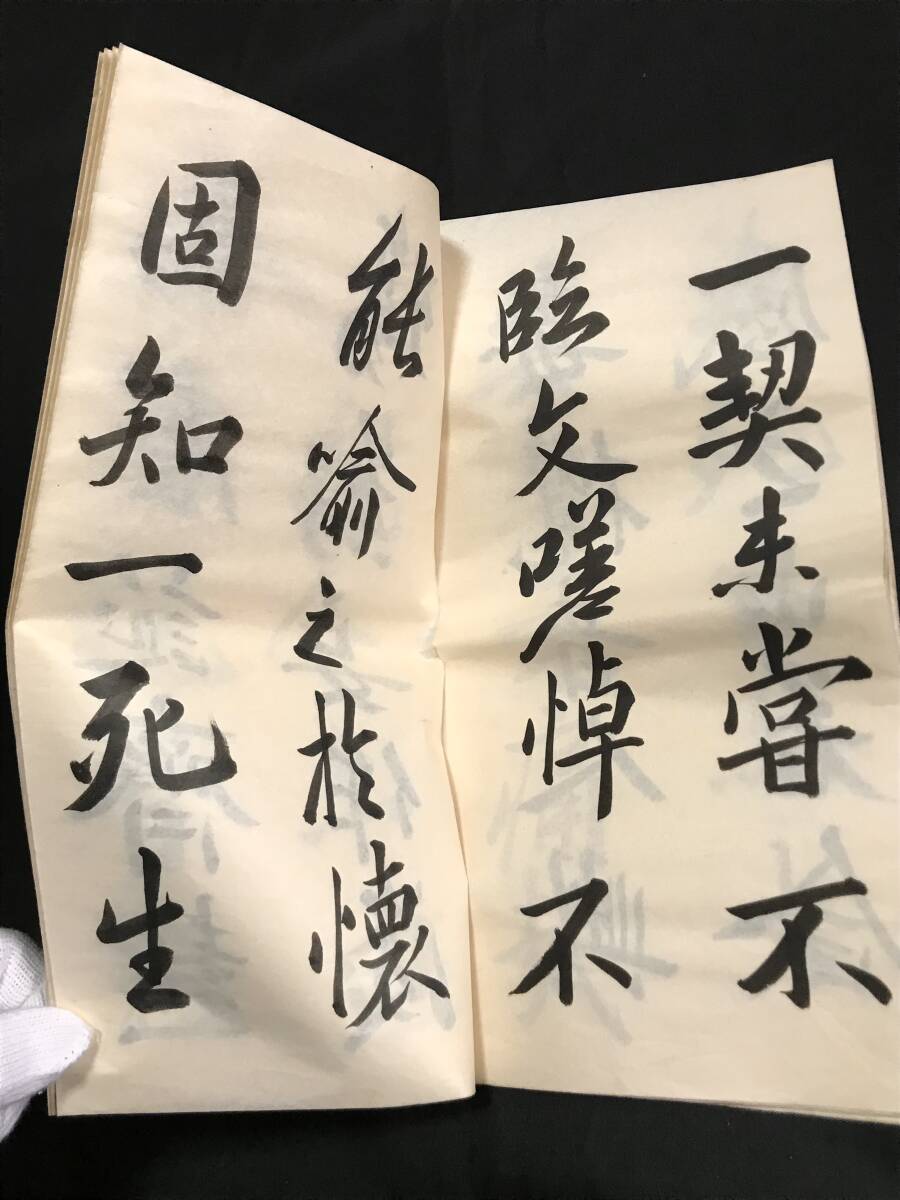 一契未甞不
臨文嗟悼不
能喻之於懷
固知一死生